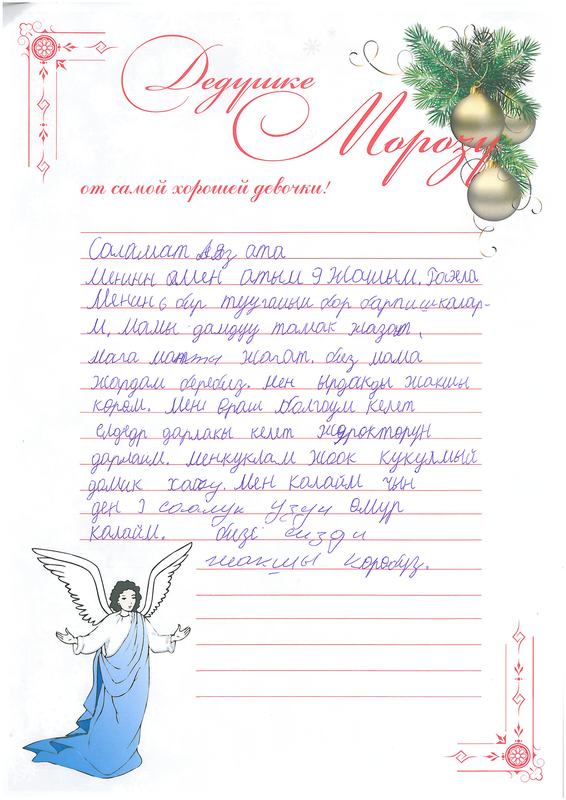 Дедушке
Морозу
от самой хорошей девочки!
Саламат Аяз ата
Менин атым 9 Жашым.
Менин 6 бир тууганым бар
М, Мамы дамдуу тамак жазат,
мага манты жагат. биз мама
жардам беребиз. Мен ырдакды жакшы
кором. Мен Враш болгоум келет
дарлакы келет
дарлаим. Менкуклам жоок кукулмый
домик хачу. Мен калайм чын
ден Э соолук узун Өмур
калайм. бизе сизди
жакшы коробуз.